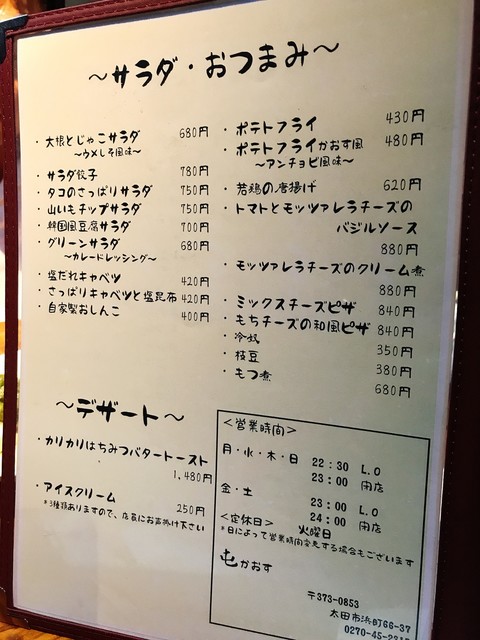 ～サラダ・おつまみ～
・大根とじゃこサラダ 680円
～ウメしそ風味～
・サラダ餃子 780円
・タコのさっぱりサラダ 750円
・山いもチップサラダ 750円
・韓国風豆腐サラダ 700円
・グリーンサラダ 680円
～カレードレッシング～
・塩だれキャベツ 420円
・さっぱりキャベツと塩昆布 420円
・自家製おしんこ 400円
・ポテトフライ 430円
・ポテトフライかおす風 480円
～アンチョビ風味～
・若鶏の唐揚げ 620円
・トマトとモッツァレラチーズの
バジルソース
880円
・モッツァレラチーズのクリーム煮
880円
・ミックスチーズピザ 840円
・もちチーズの和風ピザ 840円
・冷奴 350円
・枝豆 380円
・もつ煮 680円
～デザート～
・カリカリはちみつバタートースト
1,480円
・アイスクリーム 250円
*3種類ありますので、店員にお声掛け下さい
＜営業時間＞
月・火・木・日 22：30 L.O
23：00 閉店
金・土 23：00 L.O
24：00 閉店
＜定休日＞ 火曜日
*日によって営業時間変更する場合もございます
かおす
〒373-0853
太田市浜町66-37
0270-45-